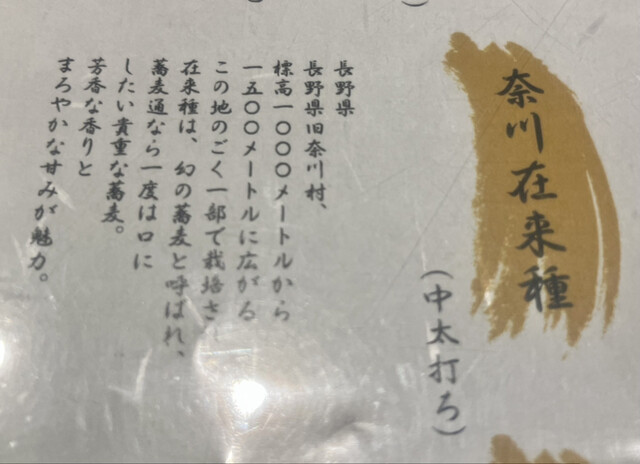 奈川在来種
(中太打ち)
長野県
長野県旧奈川村、
標高一〇〇〇メートルから
一五〇〇メートルに広がる
この地のごく一部で栽培さ
在来種は、幻の蕎麦と呼ばれ、
蕎麦通なら一度は口に
したい貴重な蕎麦。
芳香な香りと
まろやかな甘みが魅力。